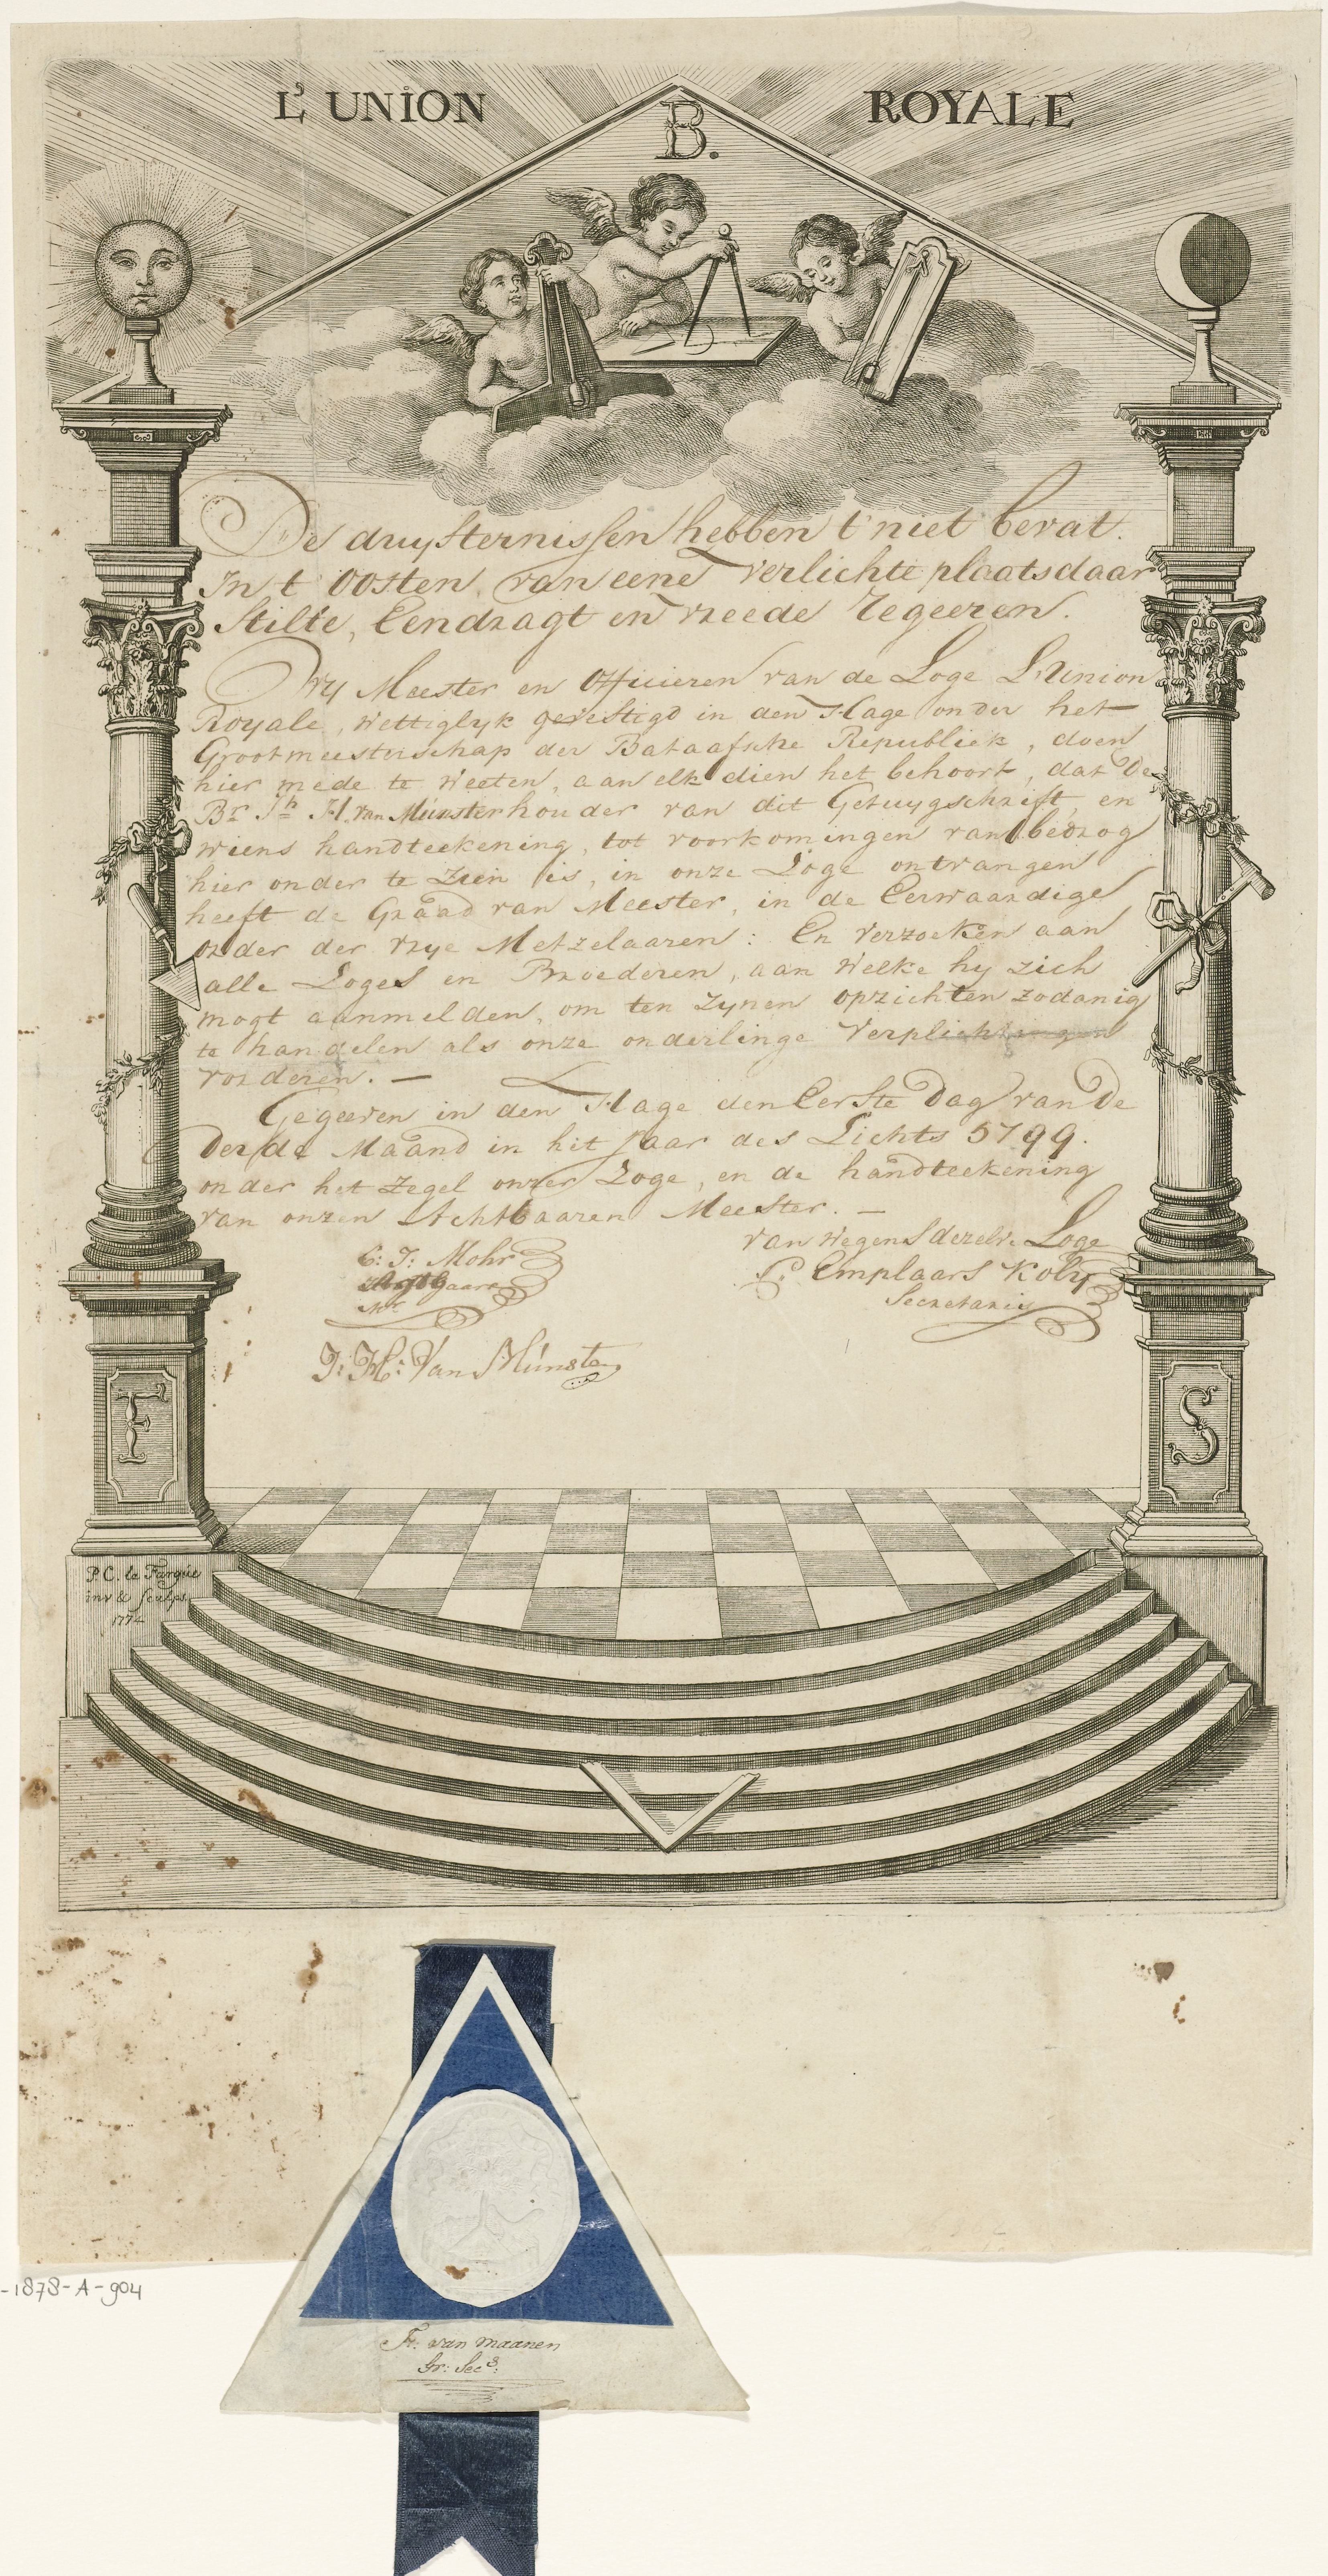 L'UNION ROYALE
B.
De duysternissen hebben t'niet bevat.
In t Oosten, van eene verlichte plaats daar
Stilte, Eendragt en vreede regeeren.
Wy Meester en Officieren van de Loge L'Union
Royale, wettiglyk gevestigd in den Hage onder het
Grootmeesterschap der Bataafsche Republiek, doen
hier mede te weeten, aan elk dien het behoort, dat De
Br. J.h H. van Münster houder van dit Getuygschrift, en
wiens handteekening, tot voorkomingen van bedrog
hier onder te zien is, in onze Loge ontvangen
heeft de Graad van Meester, in de Eerwaardige
order der vrye Metzelaaren: En verzoeken aan
alle Loges en Broederen, aan welke hy zich
mogt aanmelden, om ten zynen opzichten zodanig
te handelen als onze onderlinge verplichtingen
vorderen. —
Gegeeven in den Hage den Eerste Dag van De
Derde Maand in hit Jaar des Lichts 5799.
onder het Zegel onzer Loge, en de handteekening
van onzen Achtbaaren Meester. —
van wegens dezelve Loge
C: J: Mohr
P. Emplaars Koly
Secretaris
J: H: Van Münster
F
S
P.C. la Fargue
inv & sculps.
1774
-1878-A-904
Fr. van maanen
Gr: Secs: